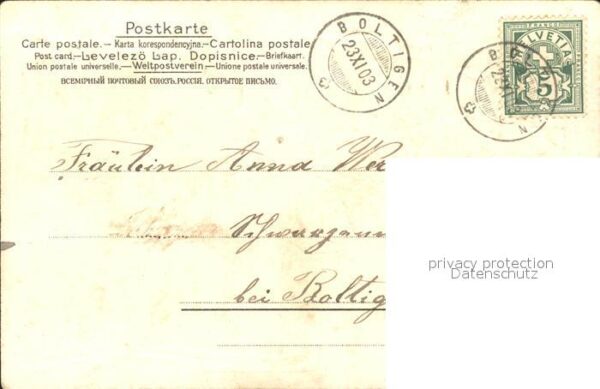 Postkarte
Carte postale. — Karta korespondencyjna. — Cartolina postale
Post card. — Levelező Lap. Dopisnice. — Briefkaart.
Union postale universelle. — Weltpostverein — Unione postale universale.
ВСЕМІРНЫЙ ПОЧТОВЫЙ СОЮЗЪ. РОССІЯ. ОТКРЫТОЕ ПИСЬМО.
BOLTIGEN
23 XI 03
FRANCO
HELVETIA
5
Fräulein Anna Wer
bei Boltig
privacy protection
Datenschutz